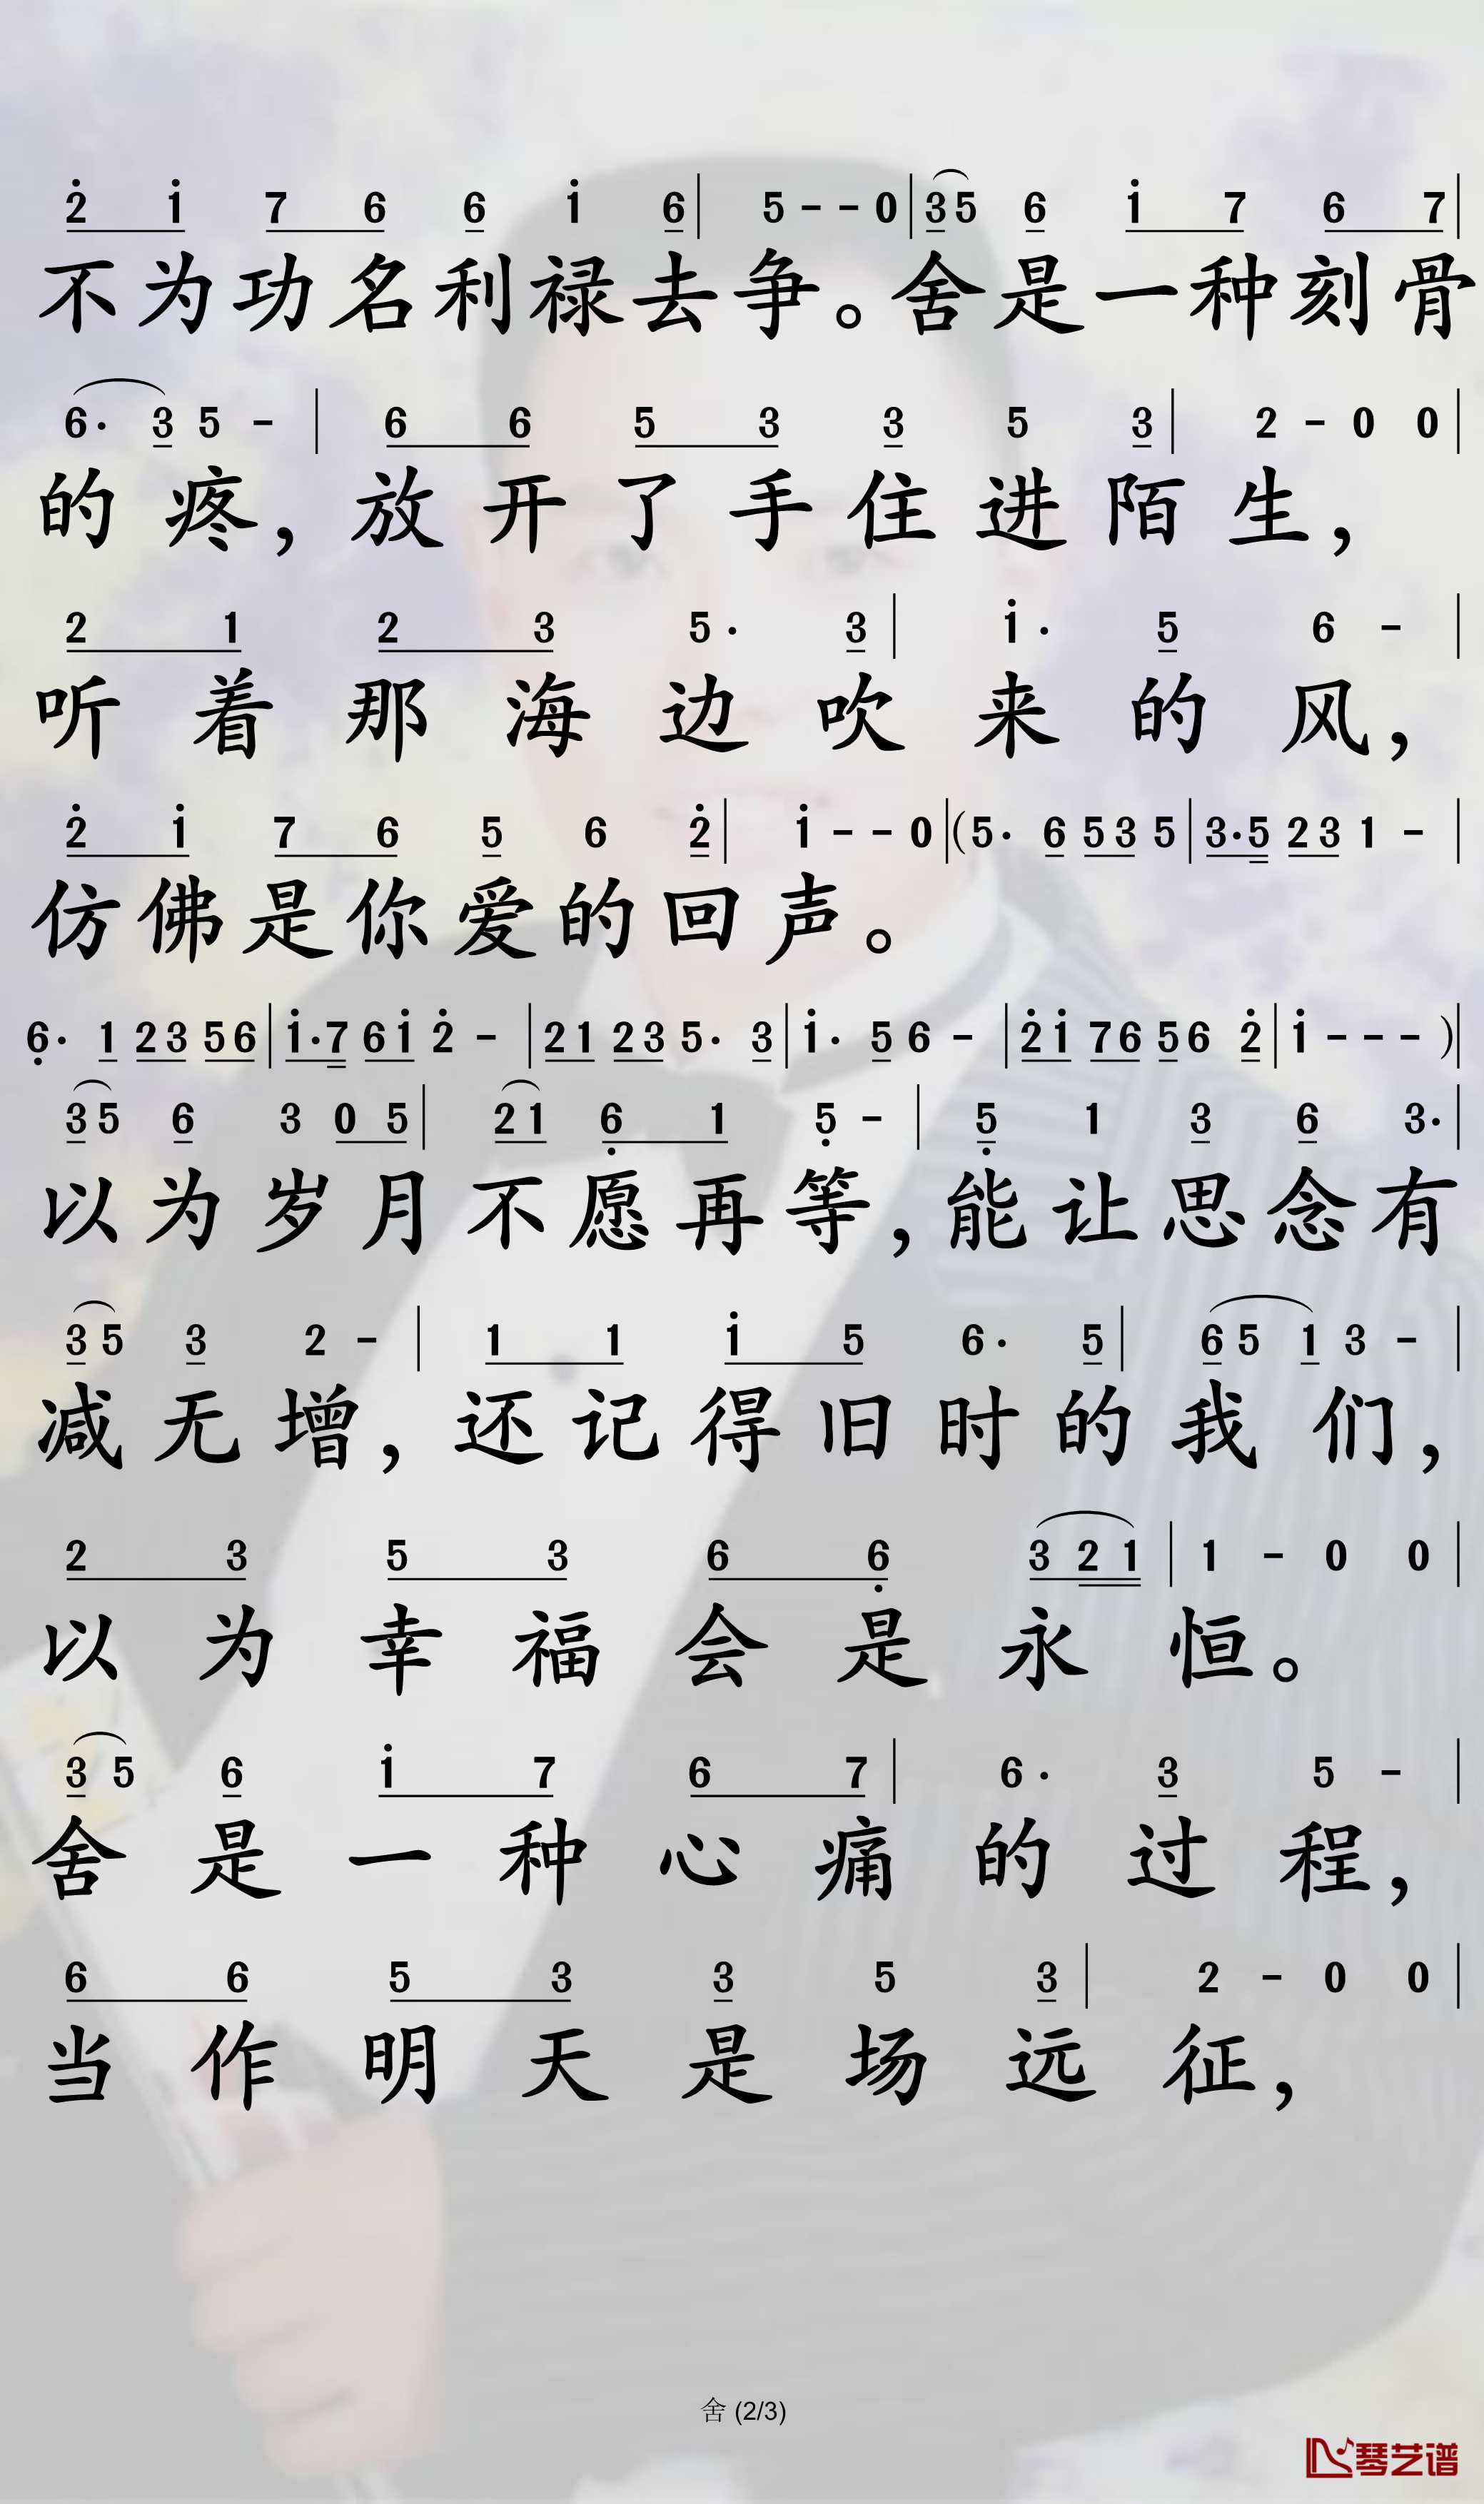 2̇ 1̇ 7 6 6 1̇ 6 | 5 - - 0 | 3 5 6 1̇ 7 6 7 |
不为功名利禄去争。舍是一种刻骨
6· 3 5 - | 6 6 5 3 3 5 3 | 2 - 0 0 |
的疼，放开了手住进陌生，
2 1 2 3 5· 3 | 1̇· 5 6 - |
听着那海边吹来的风，
2̇ 1̇ 7 6 5 6 2̇ | 1̇ - - 0 | (5· 6 5 3 5 | 3·5 2 3 1 - |
仿佛是你爱的回声。
6̣· 1 2 3 5 6 | 1̇·7 6 1̇ 2̇ - | 2 1 2 3 5· 3 | 1̇· 5 6 - | 2̇ 1̇ 7 6 5 6 2̇ | 1̇ - - - ) |
3 5 6 3 0 5 | 2 1 6̣ 1 5̣ - | 5̣ 1 3 6 3· |
以为岁月不愿再等，能让思念有
3 5 3 2 - | 1 1 1̇ 5 6· 5 | 6 5 1 3 - |
减无增，还记得旧时的我们，
2 3 5 3 6 6̣ 3 2 1 | 1 - 0 0 |
以为幸福会是永恒。
3 5 6 1̇ 7 6 7 | 6· 3 5 - |
舍是一种心痛的过程，
6 6 5 3 3 5 3 | 2 - 0 0 |
当作明天是场远征，
舍 (2/3)
琴艺谱